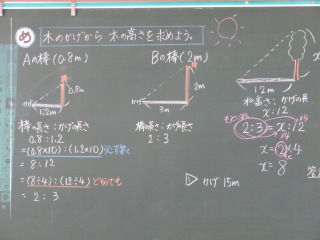 め 木のかげから 木の高さを求めよう。
Aの棒(0.8m)
棒
0.8m
1.2m
棒の長さ:かげの長さ
0.8:1.2
=(0.8×10):(1.2×10) 必ず書く
=8:12
=(8÷4):(12÷4) どちらでも
=2:3
Bの棒(2m)
棒
2m
3m
棒の長さ:かげの長さ
2:3
12m
木の高さ:かげの長
x:12
2:3=x:12
×4
×4
x=2×4
x=8
かげ 15m